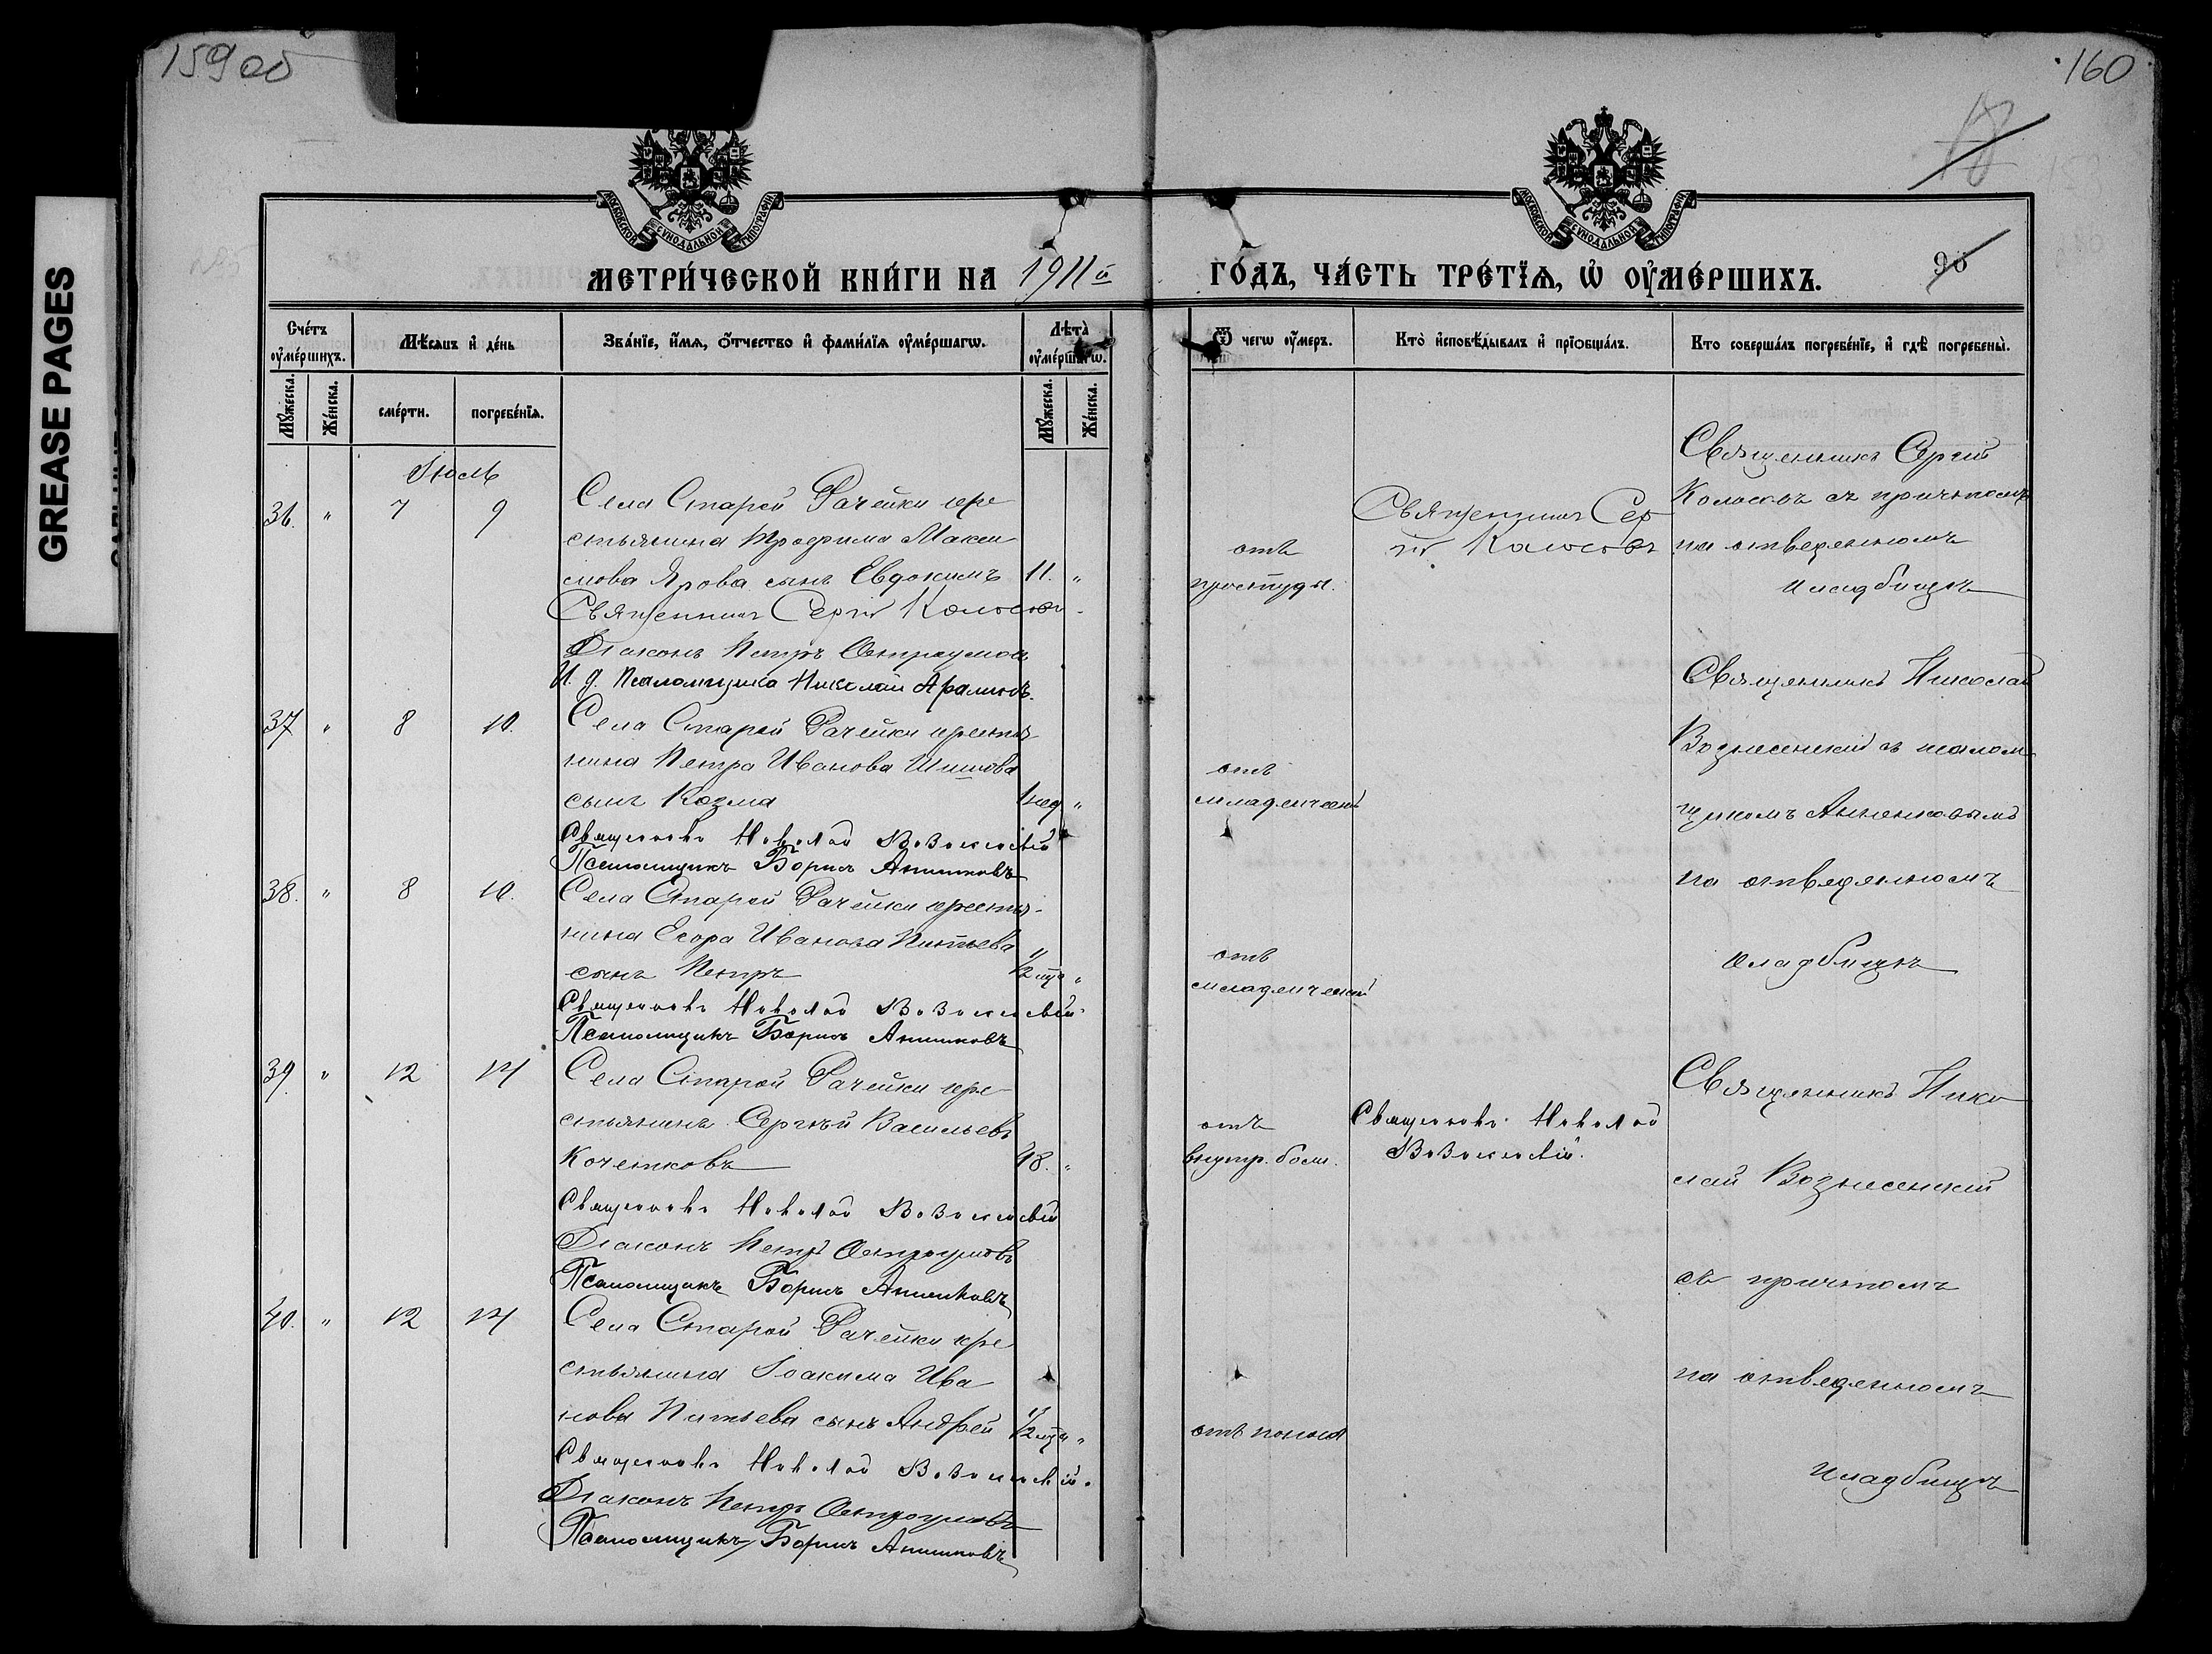 159 об
160
GREASE PAGES
МОСКОВСКОЙ СѴНОДАЛЬНОЙ ТИПОГРАФІИ
МОСКОВСКОЙ СѴНОДАЛЬНОЙ ТИПОГРАФІИ
МЕТРИ́ЧЕСКОЙ КНИ́ГИ НА 1911й
ГО́ДЪ, ЧА́СТЬ ТРЕ́ТЇѦ, Ѡ҆ ОУ҆МЕ́РШИХЪ.
90
Сче́тъ оу҆ме́ршихъ.
Мѣ́сяцъ и҆ де́нь
Зва́нїе, и҆́мѧ, ѻ҆́тчество и҆ фами́лїѧ оу҆ме́ршагѡ.
Лѣта̀ оу҆ме́ршагѡ.
Ѿ чегѡ̀ оу҆́меръ.
Кто̀ и҆сповѣ́дывалъ и҆ прїѡбща́лъ.
Кто соверша́лъ погребе́нїе, и҆ гдѣ̀ погребены̀.
Мꙋ́жеска.
Же́нска.
сме́рти.
погребе́нїѧ.
Мꙋ́жеска.
Же́нска.
Іюль
36. " 7 9
Села Старой Рачейки кре
стьянина Трофима Макси
мова Ярова сынъ Евдокимъ 11. "
Священникъ Сергій Колосовъ
Діаконъ Петръ Остроумовъ
И. д. Псаломщика Николай
отъ
простуды.
Священникъ Сер
гій Колосовъ
Священникъ Сергій
Колосовъ съ причтомъ
на отведенномъ
кладбищѣ
37 " 8 10.
Села Старой Рачейки крестья
нина Петра Иванова Шишова
сынъ Козма 1 нед "
Священникъ Николай Вознесенскій
Псаломщикъ Борисъ Анненковъ
отъ
младенческ
Священникъ Николай
Вознесенскій съ псалом
щикомъ Анненковымъ
на отведенномъ
кладбищѣ
38. " 8 10.
Села Старой Рачейки крестья-
нина Егора Иванова Питьева
сынъ Петръ 1/2 мца "
Священникъ Николай Вознесенскій
Псаломщикъ Борисъ Анненковъ
отъ
младенческой
39. " 12 14
Села Старой Рачейки кре
стьянинъ Сергѣй Васильевъ
Кочетковъ 48. "
Священникъ Николай Вознесенскій
Діаконъ Петръ Остроумовъ
Псаломщикъ Борисъ Анненковъ
отъ
внутр. болѣ.
Священникъ Николай
Вознесенскій.
Священникъ Нико
лай Вознесенскій
съ причтомъ
на отведенномъ
кладбищѣ
40. " 12 14
Села Старой Рачейки кре
стьянина Іоакима Ива
нова Питьева сынъ Андрей 1/2 мца "
Священникъ Николай Вознесенскій.
Діаконъ Петръ Остроумовъ
Псаломщикъ Борисъ Анненковъ
отъ поноса